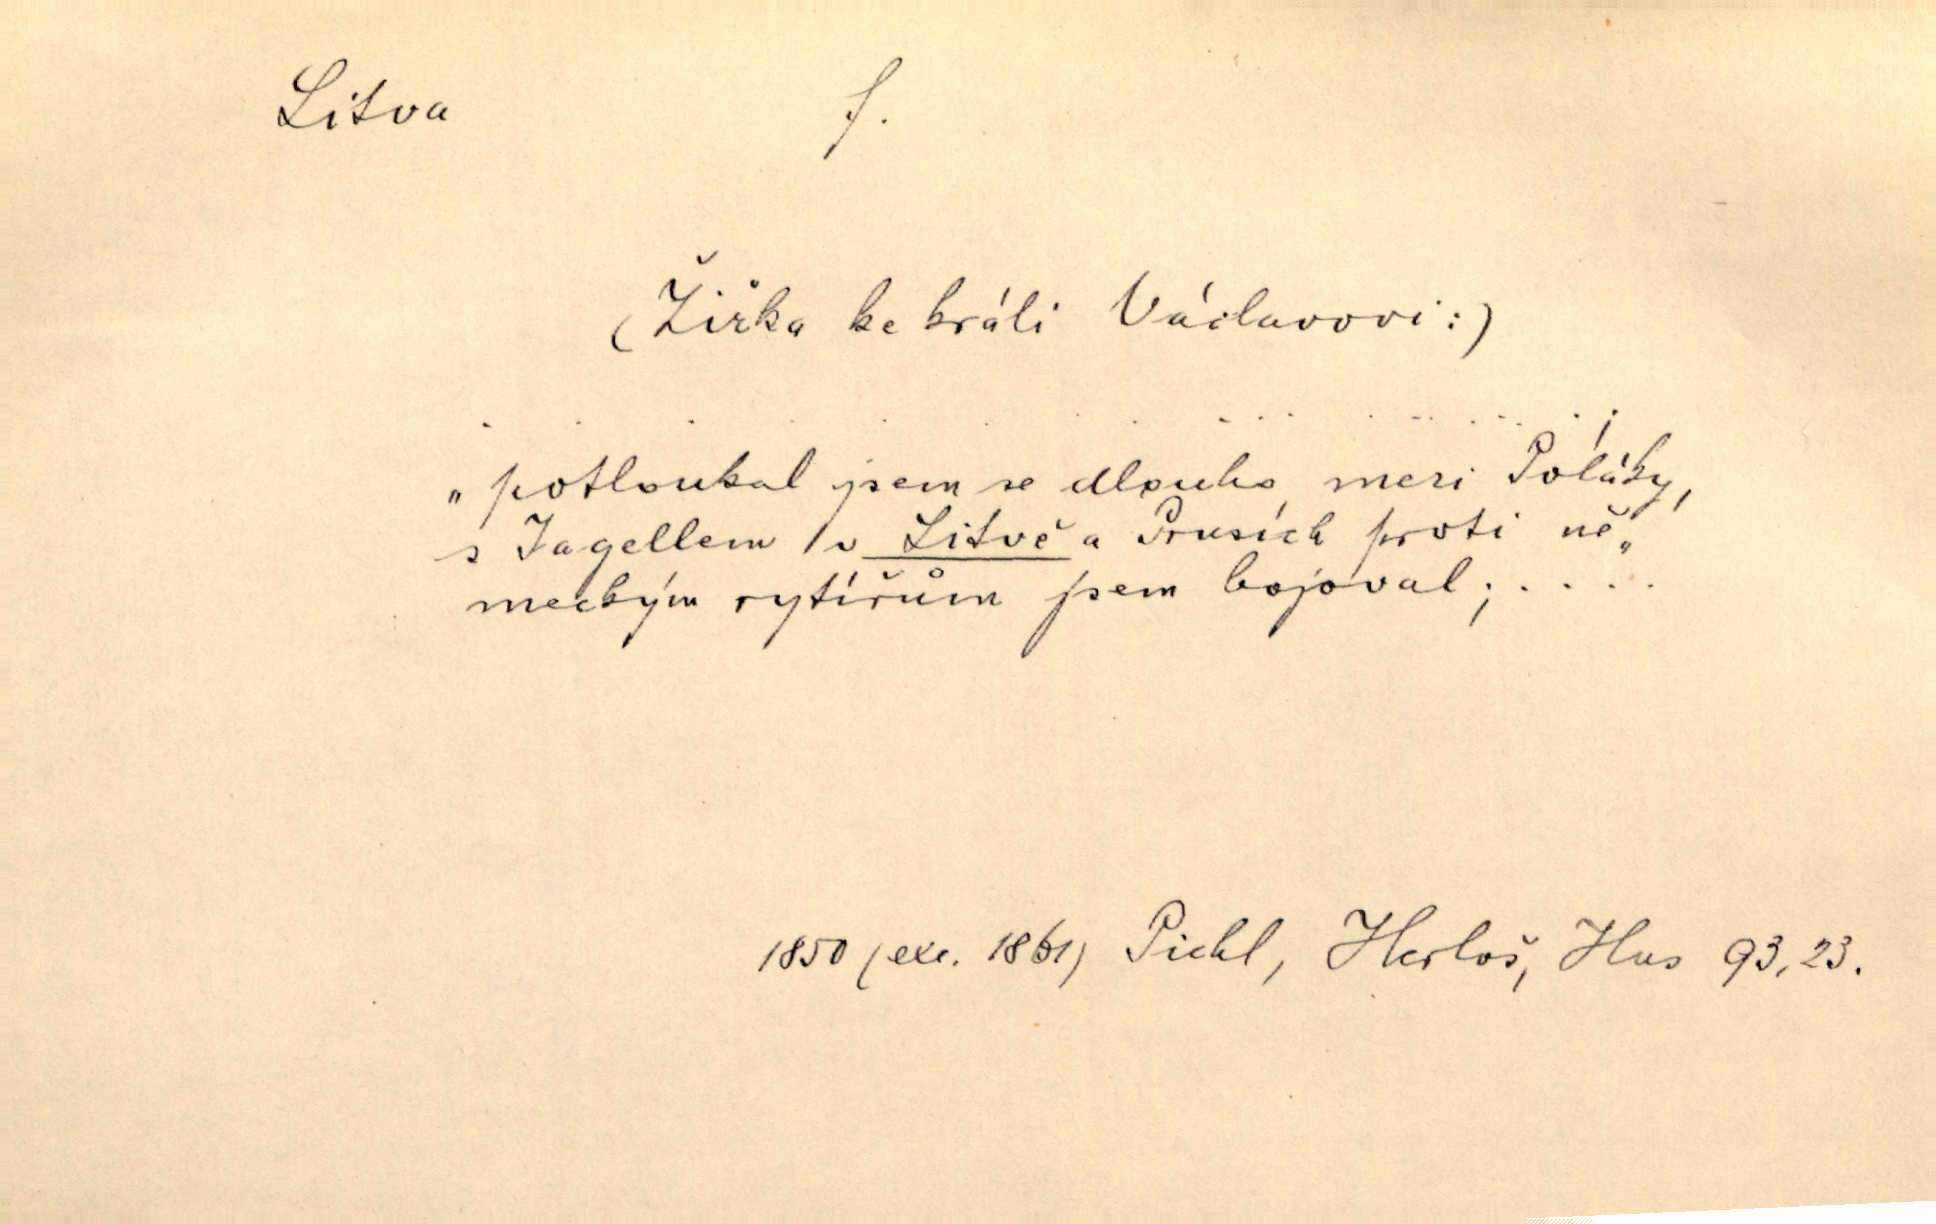 Litva f.
(Žižka ke králi Václavovi:)
. . . . . . . . . . . . . . . . . .
„potloukal jsem se dlouho mezi Poláky,
s Jagellem v Litvě a Prusích proti ně„
meckým rytířům jsem bojoval; . . . .
1850 (exc. 1861) Pichl, Herloš, Hus 93, 23.